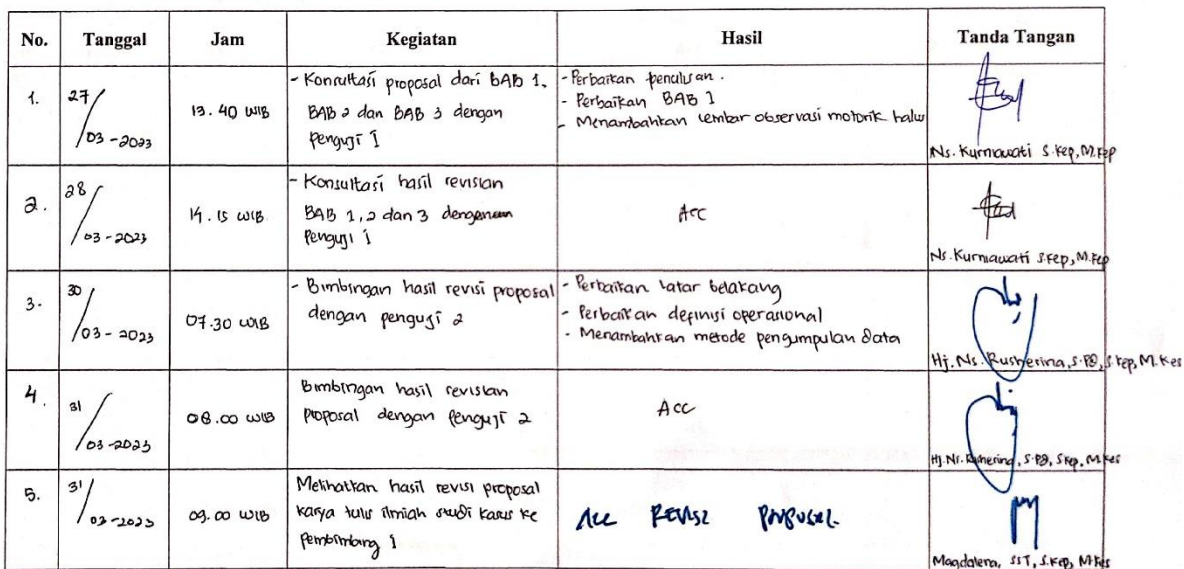 No. Tanggal Jam Kegiatan Hasil Tanda Tangan
1. 27/03-2023 13.40 WIB
- Konsultasi proposal dari BAB 1,
BAB 2 dan BAB 3 dengan
Penguji I
- Perbaikan penulisan.
- Perbaikan BAB I
- Menambahkan lembar observasi motorik halus
Ns. Kurniawati S.Kep, M.Kep
2. 28/03-2023 14.15 WIB
- Konsultasi hasil revisian
BAB 1, 2 dan 3 dengan
Penguji 1
Acc
Ns. Kurniawati S.Kep, M.Kep
3. 30/03-2023 07.30 WIB
- Bimbingan hasil revisi proposal
dengan penguji 2
- Perbaikan latar belakang
- Perbaikan definisi operasional
- Menambahkan metode pengumpulan data
Hj. Ns. Rusherina, S.Pd, S.Kep, M.Kes
4. 31/03-2023 08.00 WIB
Bimbingan hasil revisian
proposal dengan penguji 2
Acc
Hj. Ns. Rusherina, S.Pd, S.Kep, M.Kes
5. 31/03-2023 09.00 WIB
Melihatkan hasil revisi proposal
karya tulis ilmiah studi kasus ke
pembimbing 1
Acc REVISI PROPOSAL.
Magdalena, SST, S.Kep, M.Kes